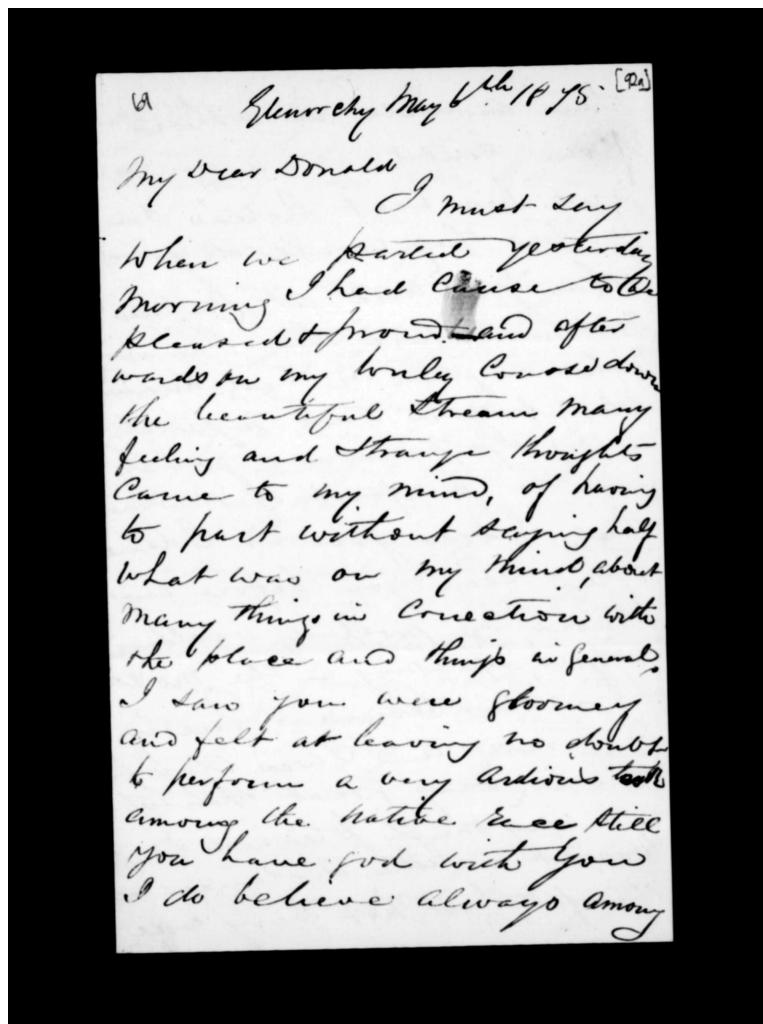 69
[92a]
Glenorchy May 6th 1875.
My Dear Donald
I must say
when we parted yesterday
morning I had Cause to be
pleased & proud and after
wards on my Course down
the beautiful Stream many
feeling and Strange thoughts
Came to my mind, of having
to part without saying half
what was on my mind, about
many things in Conection with
the place and things in general,
I saw you were gloomey
and felt at leaving no doubt
to perform a very ardious task
among the native race still
you have god with you
I do believe always among